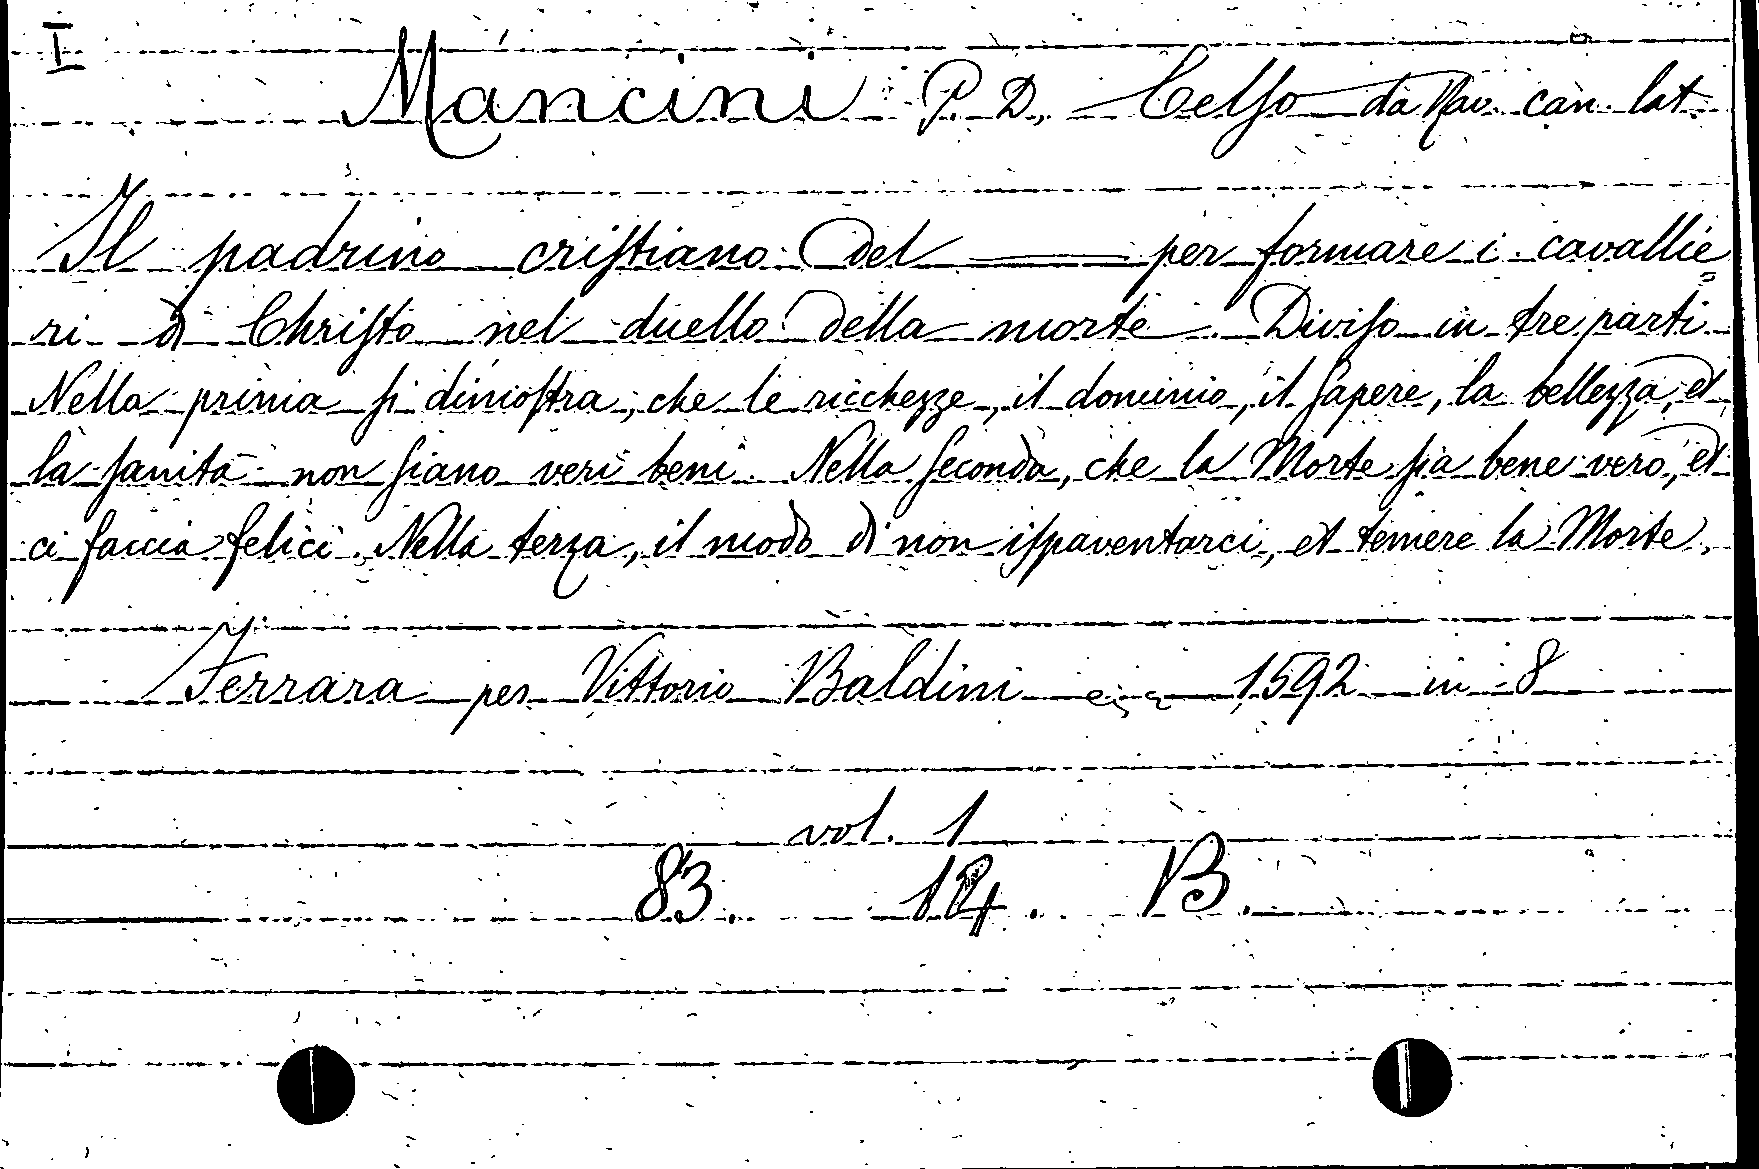 I
Mancini P. D. Celſo da Rav. can. lat.
Il padrino criſtiano del —— per formare i cavallie=
ri di Chriſto nel duello della morte. Diviſo in tre parti.
Nella prima ſi dimoſtra, che le ricchezze, il dominio, il ſapere, la bellezza, et
la ſanità non ſiano veri beni. Nella ſeconda, che la Morte ſia bene vero, et
ci faccia felici. Nella terza, il modo di non iſpaventarci, et temere la Morte.
Ferrara per Vittorio Baldini 1592 in 8
vol. 1
83. 124. B.